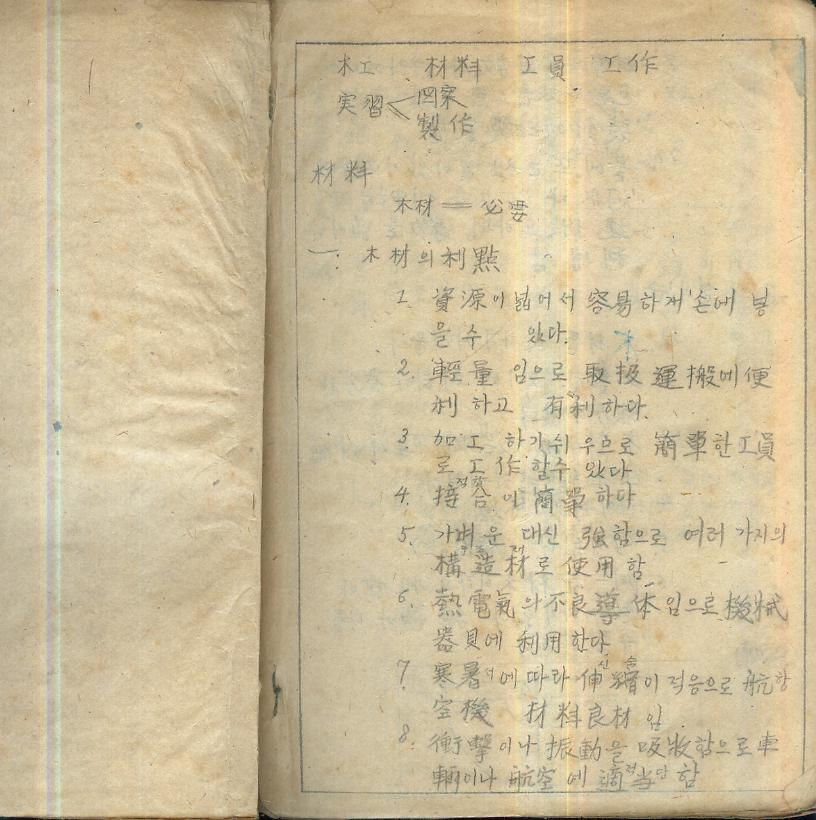 木工 材料 工員 工作
実習 図案
製作
材料
木材 — 必要
一. 木材의 利點
1. 資源이 넓어서 容易하게 손에 넣
을 수 있다.
2. 輕量임으로 取扱 運搬에 便
利하고 有利하다.
3. 加工하기 쉬우므로 簡單한 工具
로 工作할 수 있다
4. 接合이 簡單하다
접합
5. 가벼운 대신 强함으로 여러 가지의
構造材로 使用함
구조재
6. 熱電氣의 不良導体임으로 機械
器具에 利用한다
7 寒暑에 따라 伸縮이 적음으로 航
신축 항
空機 材料良材임
8. 衝擊이나 振動을 吸收함으로 車
輌이나 航空에 適当함
적당